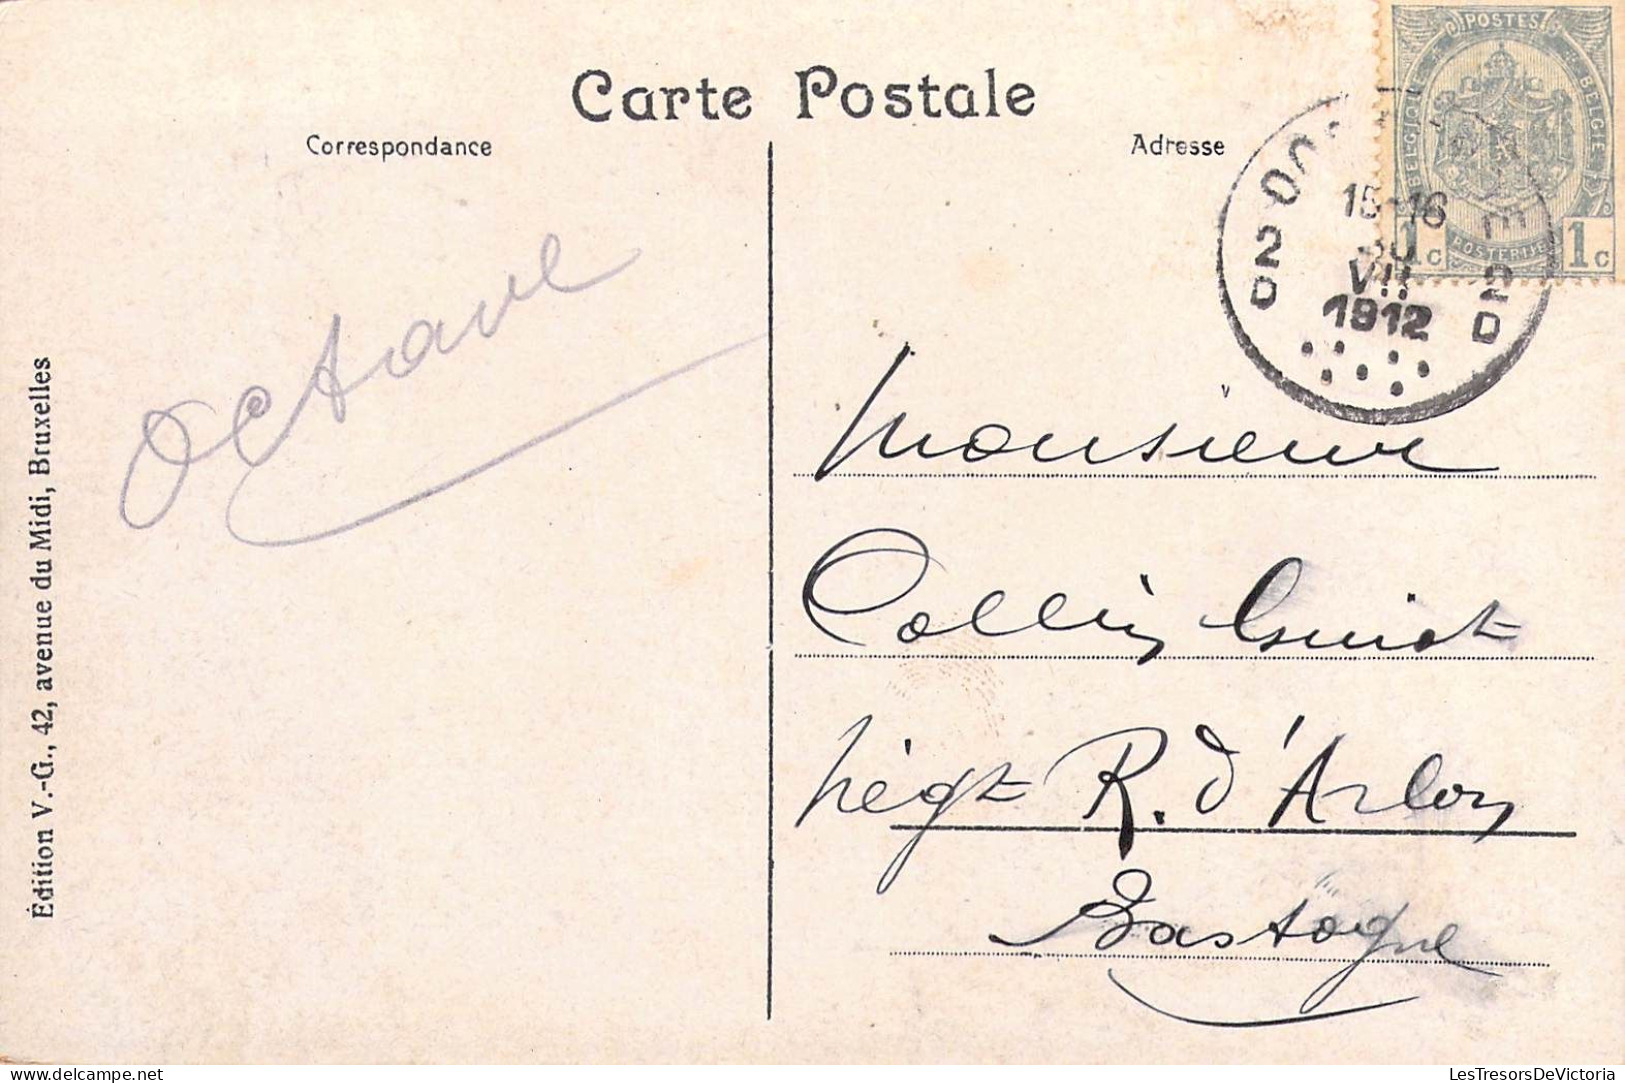 Carte Postale
Correspondance
Adresse
POSTES
BELGIQUE
BELGIË
POSTERIJEN
1c
1c
15-16
VII
1912
2
D
2
D
Octave
Monsieur
Collin
négt R. d'Arlon
Bastogne
Édition V.-G., 42, avenue du Midi, Bruxelles
LesTresorsDeVictoria
delcampe.net